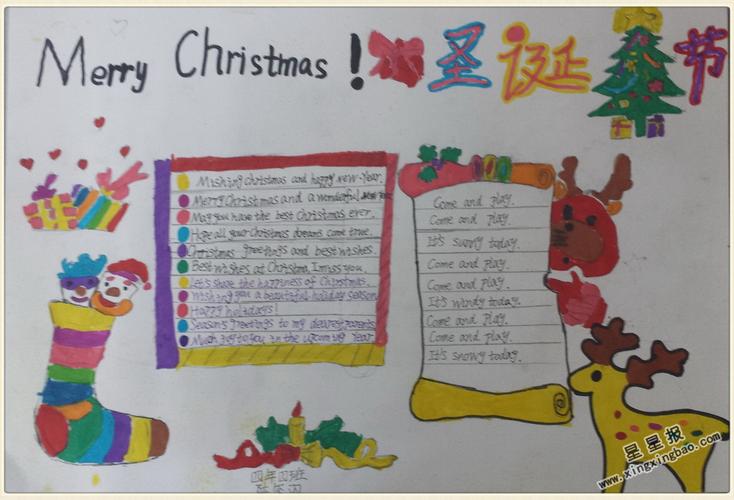 Merry Christmas ! 圣诞节
Wishing Christmas and happy new-Year.
Merry Christmas and a wonderful New Year
May you have the best Christmas ever.
Hope all your Christmas dreams come true.
Christmas greetings and best wishes.
Best wishes at Christma. I miss you.
Let's share the happiness of Christmas.
Wishing you a beautiful holiday season
Happy holidays!
Season's greetings to my dearest parents
Much joy to you in the upcoming Year.
Come and play.
Come and play.
It's sunny today.
Come and play.
Come and play.
It's windy today.
Come and play.
Come and play.
It's snowy today.
四年四班
星星报
www.xingxingbao.com